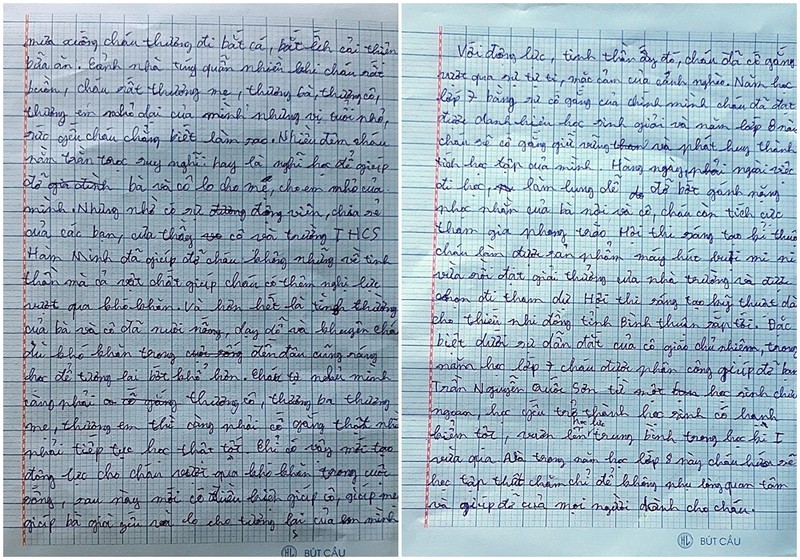 mưa xuống cháu thường đi bắt cá, bắt ếch cải thiện
bữa ăn. Cảnh nhà túng quẫn nhiều khi cháu rất
buồn, cháu rất thương mẹ, thương bà, thương cô,
thương em nhỏ dại của mình nhưng vì tuổi nhỏ,
sức yếu cháu chẳng biết làm sao. Nhiều đêm cháu
nằm trằn trọc suy nghĩ hay là nghỉ học để giúp
đỡ gia đình bà và cô lo cho mẹ, cho em nhỏ của
mình. Nhưng nhờ có sự động viên, chia sẻ
của các bạn, của thầy cô và trường THCS
Hàm Minh đã giúp đỡ cháu không những về tinh
thần mà cả vật chất giúp cháu có thêm nghị lực
vượt qua khó khăn. Và hơn hết là tình thương
của bà và cô đã nuôi nấng, dạy dỗ và khuyên cháu
dù khó khăn trong cuộc sống đến đâu cũng ráng
học để tương lai bớt khổ hơn. Cháu tự nhủ mình
rằng phải cố gắng thương cô, thương bà thương
mẹ, thương em thì càng phải cố gắng thật nhiều
phải tiếp tục học thật tốt. Chỉ có vậy mới tạo
động lực cho cháu vượt qua khó khăn trong cuộc
sống, sau này mới có điều kiện giúp cô, giúp mẹ
giúp bà già yếu và lo cho tương lai của em mình
BÚT CÂU
Với động lực, tinh thần ấy đó, cháu đã cố gắng
vượt qua sự tự ti, mặc cảm của cảnh nghèo. Năm học
lớp 7 bằng sự cố gắng của chính mình cháu đã đạt
được danh hiệu học sinh giỏi và năm lớp 8 này
cháu sẽ cố gắng giữ vững và phát huy thành
tích học tập của mình. Hàng ngày, phải ngoài việc
đi học, làm lụng để đỡ bớt gánh nặng
nhọc nhằn của bà nội và cô, cháu còn tích cực
tham gia phong trào Hội thi sáng tạo kĩ thuật
cháu làm được sản phẩm máy hút bụi mi ni
vừa rồi đạt giải thưởng của nhà trường và được
chọn đi tham dự Hội thi sáng tạo kỹ thuật dành
cho thiếu nhi đồng tỉnh Bình Thuận sắp tới. Đặc
biệt dưới sự dẫn dắt của cô giáo chủ nhiệm, trong
năm học lớp 7 cháu được phân công giúp đỡ bạn
Trần Nguyễn Quốc Sơn từ một học sinh chưa
ngoan, học yếu trở thành học sinh có hạnh
kiểm tốt, vươn lên học lực trung bình trong học kì I
vừa qua. Và trong năm học lớp 8 này cháu hứa sẽ
học tập thật chăm chỉ để không phụ lòng quan tâm
và giúp đỡ của mọi người dành cho cháu.
BÚT CÂU